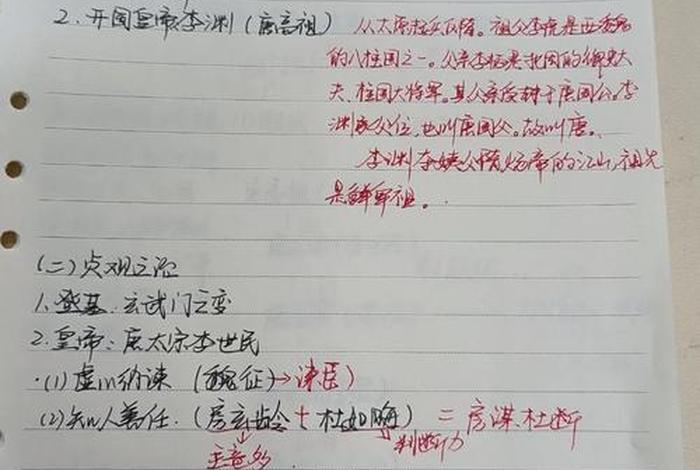 2.开国皇帝:李渊(唐高祖)
从太原起兵反隋。祖父李虎是西魏
的八柱国之一。父亲李昞是北周的御史大
夫、柱国大将军。其父亲受封于唐国公。李
渊成父位,也叫唐国公。故叫唐。
李渊夺姨父隋炀帝的江山,祖先
是鲜卑祖。
(二)贞观之治
1.登基:玄武门之变
2.皇帝:唐太宗李世民
·(1)虚心纳谏 (魏征)→谏臣)
(2)知人善任.(房玄龄+杜如晦) = 房谋杜断
主意多 判断力